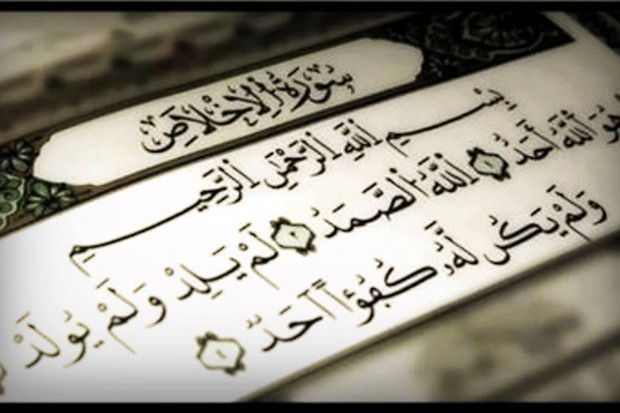 سُورَةُ الْإِخْلَاصِ
بِسْمِ اللَّهِ الرَّحْمَٰنِ الرَّحِيمِ
هُوَ اللَّهُ أَحَدٌ ١ اللَّهُ الصَّمَدُ ٢ لَمْ يَلِدْ وَلَمْ يُولَدْ
وَلَمْ يَكُن لَّهُ كُفُوًا أَحَدٌ ٤